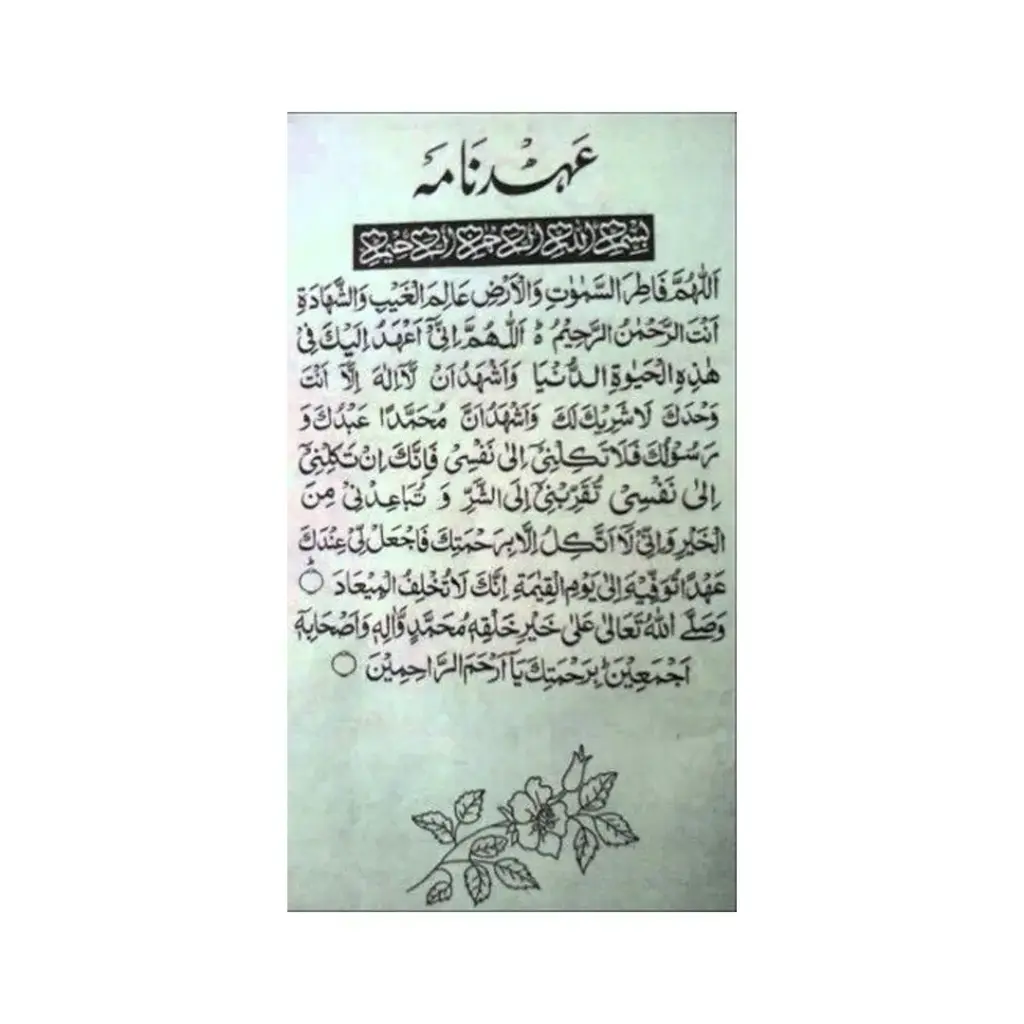 عَہْدنَامَہ
بِسْمِ اللهِ الرَّحْمٰنِ الرَّحِيْمِ
اَللّٰهُمَّ فَاطِرَ السَّمٰوٰتِ وَالْاَرْضِ عَالِمَ الْغَيْبِ وَالشَّهَادَةِ
اَنْتَ الرَّحْمٰنُ الرَّحِيْمُ ہ ط اَللّٰهُمَّ اِنِّيْٓ اَعْهَدُ اِلَيْكَ فِيْ
هٰذِهِ الْحَيٰوةِ الدُّنْيَا وَاَشْهَدُ اَنْ لَّآ اِلٰهَ اِلَّآ اَنْتَ
وَحْدَكَ لَا شَرِيْكَ لَكَ وَاَشْهَدُ اَنَّ مُحَمَّدًا عَبْدُكَ وَ
رَسُوْلُكَ فَلَا تَكِلْنِيْٓ اِلٰى نَفْسِيْ فَاِنَّكَ اِنْ تَكِلْنِيْٓ
اِلٰى نَفْسِيْ تُقَرِّبْنِيْٓ اِلَى الشَّرِّ وَ تُبَاعِدْنِيْ مِنَ
الْخَيْرِ وَاِنِّيْ لَآ اَتَّكِلُ اِلَّا بِرَحْمَتِكَ فَاجْعَلْ لِّيْ عِنْدَكَ
عَهْدًا تُوَفِّيْهِ اِلٰى يَوْمِ الْقِيٰمَةِ اِنَّكَ لَا تُخْلِفُ الْمِيْعَادَ ○ ط
وَصَلَّے اللهُ تَعَالٰى عَلٰى خَيْرِ خَلْقِهٖ مُحَمَّدٍ وَّاٰلِهٖ وَاَصْحَابِهٖٓ
اَجْمَعِيْنَ ط بِرَحْمَتِكَ يَآ اَرْحَمَ الرَّاحِمِيْنَ ○